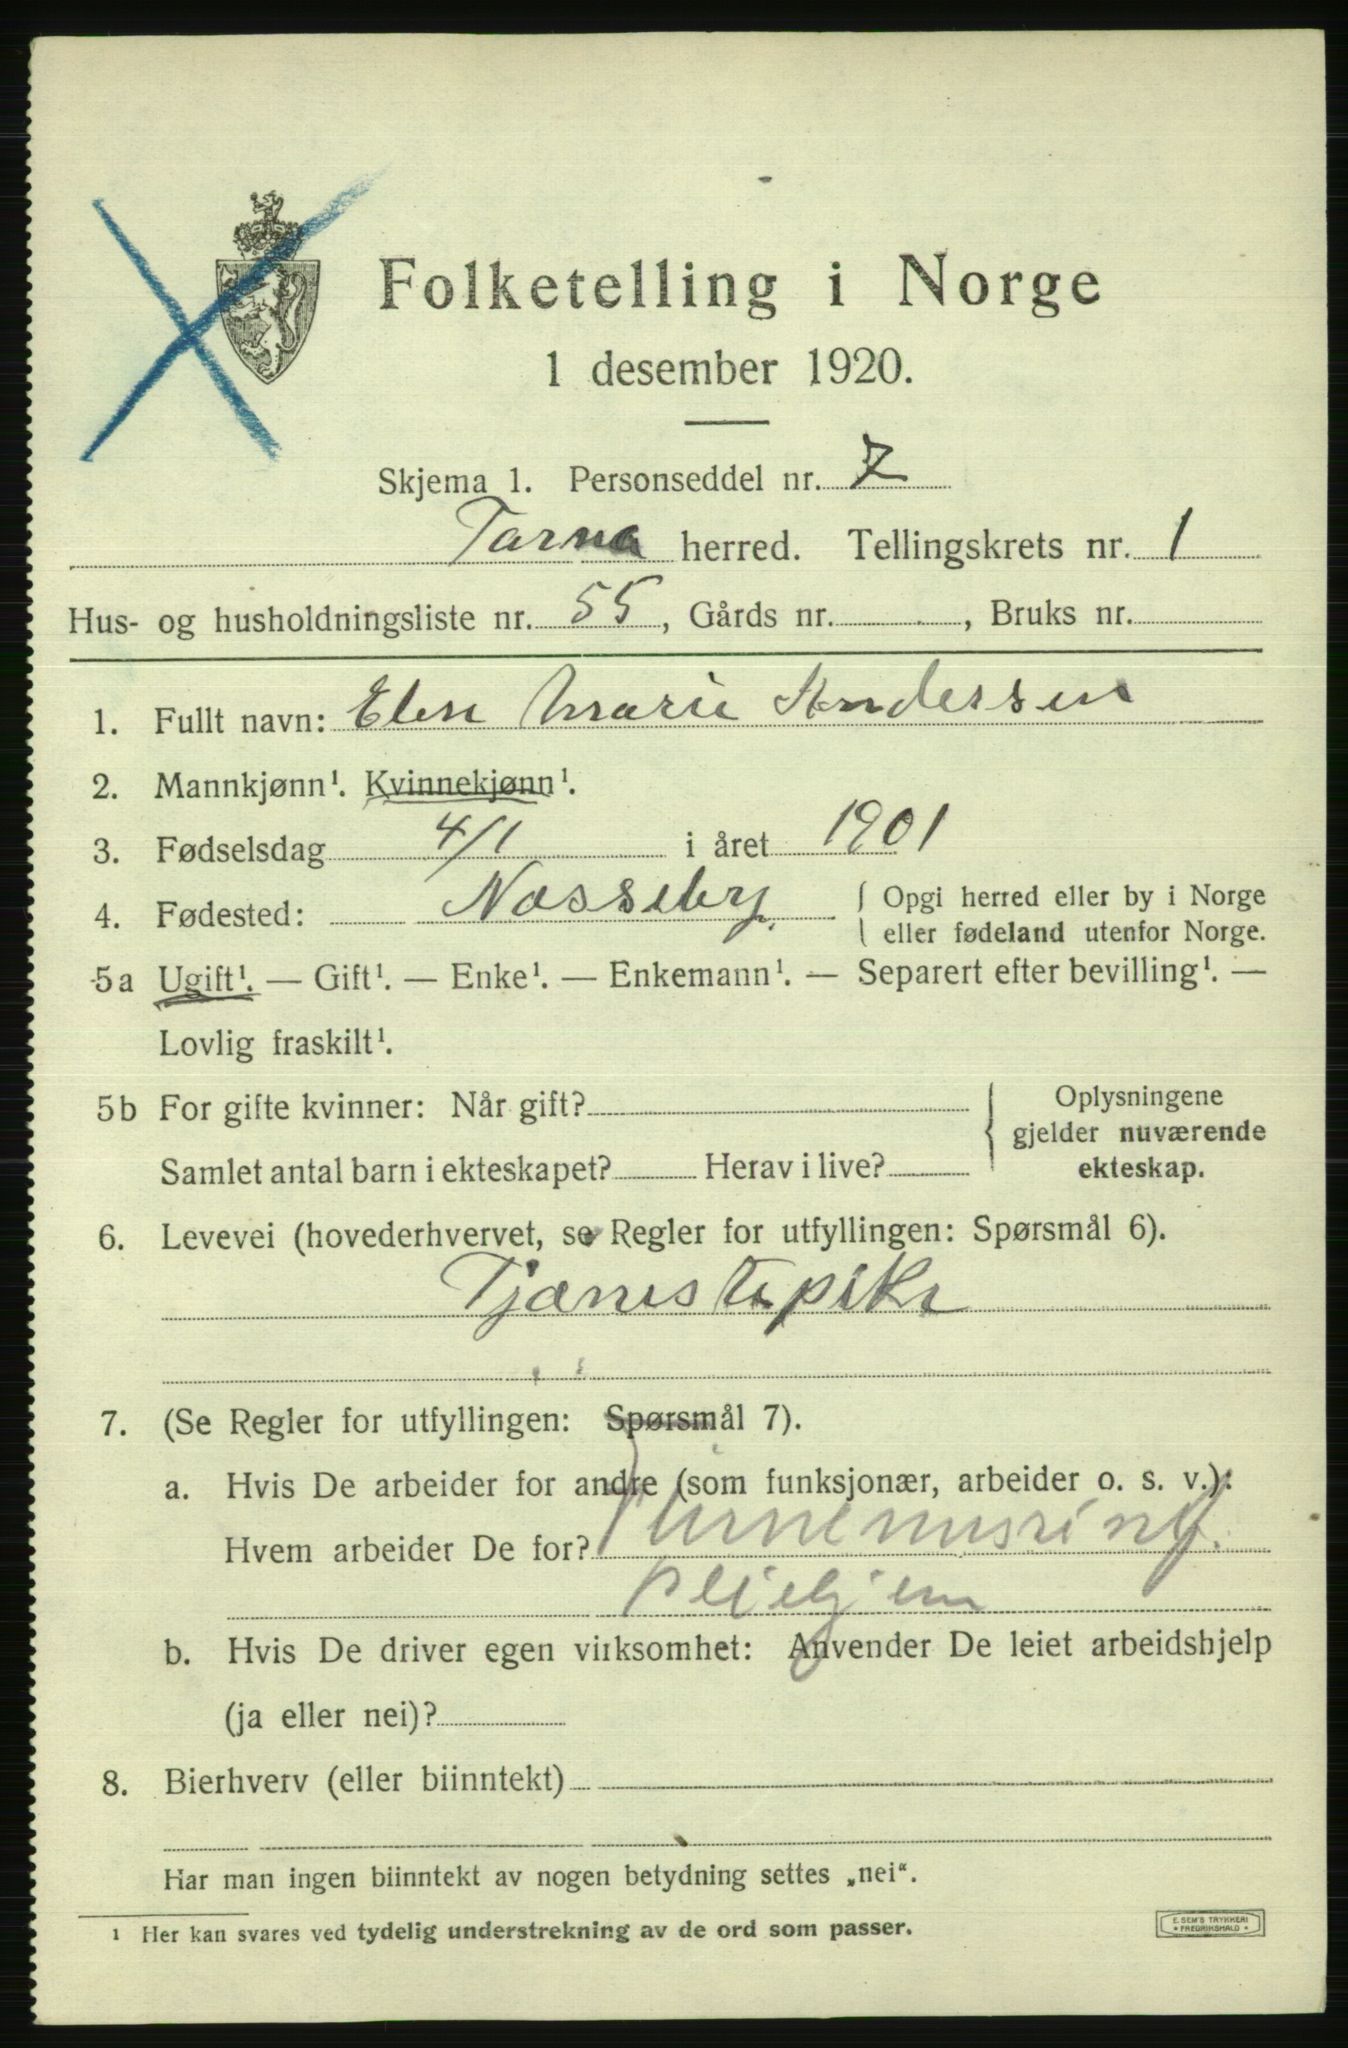 Folketelling i Norge
1 desember 1920.
Skjema 1. Personseddel nr. 7
Tarna herred. Tellingskrets nr. 1
Hus- og husholdningsliste nr. 55, Gårds nr. , Bruks nr.
1. Fullt navn: Elen Marie Andersen
2. Mannkjønn¹. Kvinnekjønn¹.
3. Fødselsdag 4/1 i året 1901
4. Fødested: Nesseby. { Opgi herred eller by i Norge
eller fødeland utenfor Norge.
5a Ugift¹. — Gift¹. — Enke¹. — Enkemann¹. — Separert efter bevilling¹. —
Lovlig fraskilt¹.
5b For gifte kvinner: Når gift? { Oplysningene
gjelder nuværende
Samlet antal barn i ekteskapet? Herav i live? ekteskap.
6. Levevei (hovederhvervet, se Regler for utfyllingen: Spørsmål 6).
Tjænestepike
7. (Se Regler for utfyllingen: Spørsmål 7).
a. Hvis De arbeider for andre (som funksjonær, arbeider o. s. v.):
Hvem arbeider De for?
pleiehjem
b. Hvis De driver egen virksomhet: Anvender De leiet arbeidshjelp
(ja eller nei)?
8. Bierhverv (eller biinntekt)
Har man ingen biinntekt av nogen betydning settes „nei“.
¹ Her kan svares ved tydelig understrekning av de ord som passer.
E. SEM'S TRYKKERI
* FREDRIKSHALD *